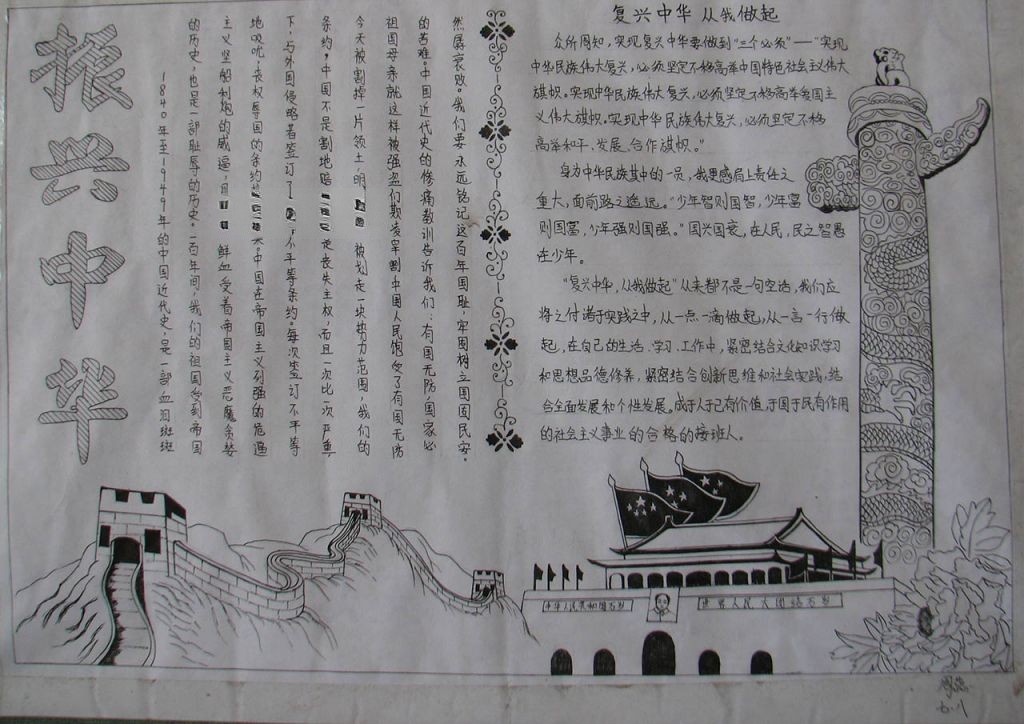 振兴中华
1840年至1949年的中国近代史,是一部血泪斑斑
的历史,也是一部耻辱的历史。一百年间,我们的祖国受到帝国
主义坚船利炮的威逼, 鲜血受着帝国主义恶魔贪婪
地吸吮,丧权辱国的条约 中国在帝国主义列强的危逼
下,与外国侵略者签订了 不平等条约。每次签订不平等
条约,中国不是割地赔 是丧失主权,而且一次比一次严重
今天被割掉一片领土,明 被划走一块势力范围,我们的
祖国母亲就这样被强盗们欺凌宰割中国人民饱受了有国无防
的苦难。中国近代史的惨痛教训告诉我们:有国无防,国家必
然孱衰败。我们要永远铭记这百年国耻,牢固树立国固民安。
复兴中华 从我做起
众所周知,实现复兴中华要做到“三个必须”——“实现
中华民族伟大复兴,必须坚定不移高举中国特色社会主义伟大
旗帜。实现中华民族伟大复兴,必须坚定不移高举爱国主
义伟大旗帜。实现中华民族伟大复兴,必须坚定不移
高举和平、发展、合作旗帜。”
身为中华民族其中的一员,我更感肩上责任之
重大,面前路之遥远。“少年智则国智,少年富
则国富,少年强则国强。”国兴国衰,在人民,民之智愚
在少年。
“复兴中华,从我做起”从来都不是一句空话,我们应
将之付诸于实践之中,从一点一滴做起,从一言一行做
起,在自己的生活、学习、工作中,紧密结合文化知识学习
和思想品德修养,紧密结合创新思维和社会实践,结
合全面发展和个性发展。成于人于己有价值,于国于民有作用
的社会主义事业的合格的接班人。
中华人民共和国万岁
世界人民大团结万岁